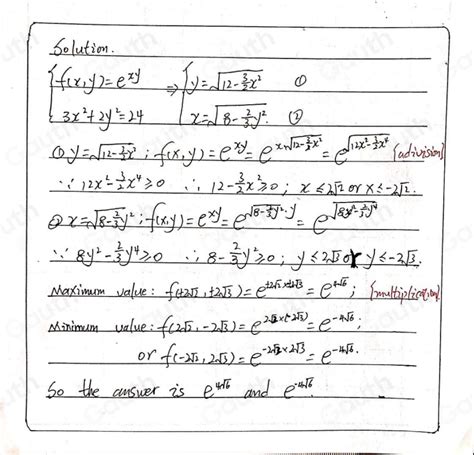 Solution.
{f(x,y)=e^{xy} ⇒ {y=√(12-\frac{3}{2}x²) ①
3x²+2y²=24 x=√(8-\frac{2}{3}y²). ②
① y=√(12-\frac{3}{2}x²); f(x,y)=e^{xy}=e^{x√(12-\frac{3}{2}x²)}=e^{√(12x²-\frac{3}{2}x⁴)}
∵ 12x²-\frac{3}{2}x⁴≥0 ∴ 12-\frac{3}{2}x²≥0; x≤2√2 or x≤-2√2.
② x=√(8-\frac{2}{3}y²); f(x,y)=e^{xy}=e^{√(8-\frac{2}{3}y²)·y}=e^{√(8y²-\frac{2}{3}y⁴)}
∵ 8y²-\frac{2}{3}y⁴≥0 ∴ 8-\frac{2}{3}y²≥0; y≤2√3 or y≤-2√3.
Maximum value: f(±2√2,±2√3)=e^{±2√2×±2√3}=e^{4√6}; {multiplication}
Minimum value: f(2√2,-2√3)=e^{2√2×(-2√3)}=e^{-4√6};
or f(-2√2,2√3)=e^{-2√2×2√3}=e^{-4√6}.
So the answer is e^{4√6} and e^{-4√6}.
Gauth